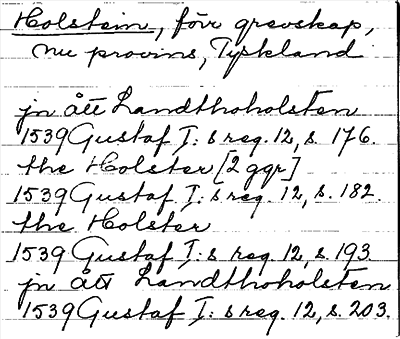 Holstein, förr grevskap,
nu provins, Tyskland
jn ått Landthoholsten
1539 Gustaf I: s reg. 12, s. 176.
the Holster [2 ggr]
1539 Gustaf I: s reg. 12, s. 182.
the Holster
1539 Gustaf I: s reg. 12, s. 193
jn ått Landthoholsten
1539 Gustaf I: s reg. 12, s. 203.